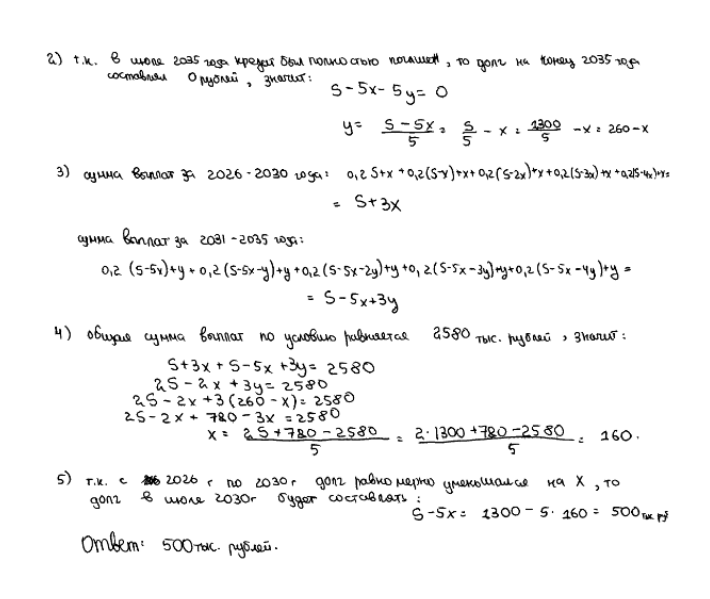 2) т.к. в июле 2035 года кредит был полностью погашен, то долг на конец 2035 года
составлял 0 рублей, значит:
S - 5x - 5y = 0
y = (S - 5x)/5 = S/5 - x = 1300/5 - x = 260 - x
3) сумма выплат за 2026-2030 года: 0,2S+x+0,2(S-x)+x+0,2(S-2x)+x+0,2(S-3x)+x+0,2(S-4x)+x=
= S+3x
сумма выплат за 2031-2035 года:
0,2(S-5x)+y+0,2(S-5x-y)+y+0,2(S-5x-2y)+y+0,2(S-5x-3y)+y+0,2(S-5x-4y)+y =
= S-5x+3y
4) общая сумма выплат по условию равняется 2580 тыс. рублей, значит:
S+3x+S-5x+3y = 2580
2S-2x+3y = 2580
2S-2x+3(260-x) = 2580
2S-2x+780-3x = 2580
x = (2S+780-2580)/5 = (2·1300+780-2580)/5 = 160.
5) т.к. с 2026 г по 2030 г долг равномерно уменьшался на X, то
долг в июле 2030г будет составлять:
S-5x = 1300-5·160 = 500 тыс. руб
Ответ: 500 тыс. рублей.